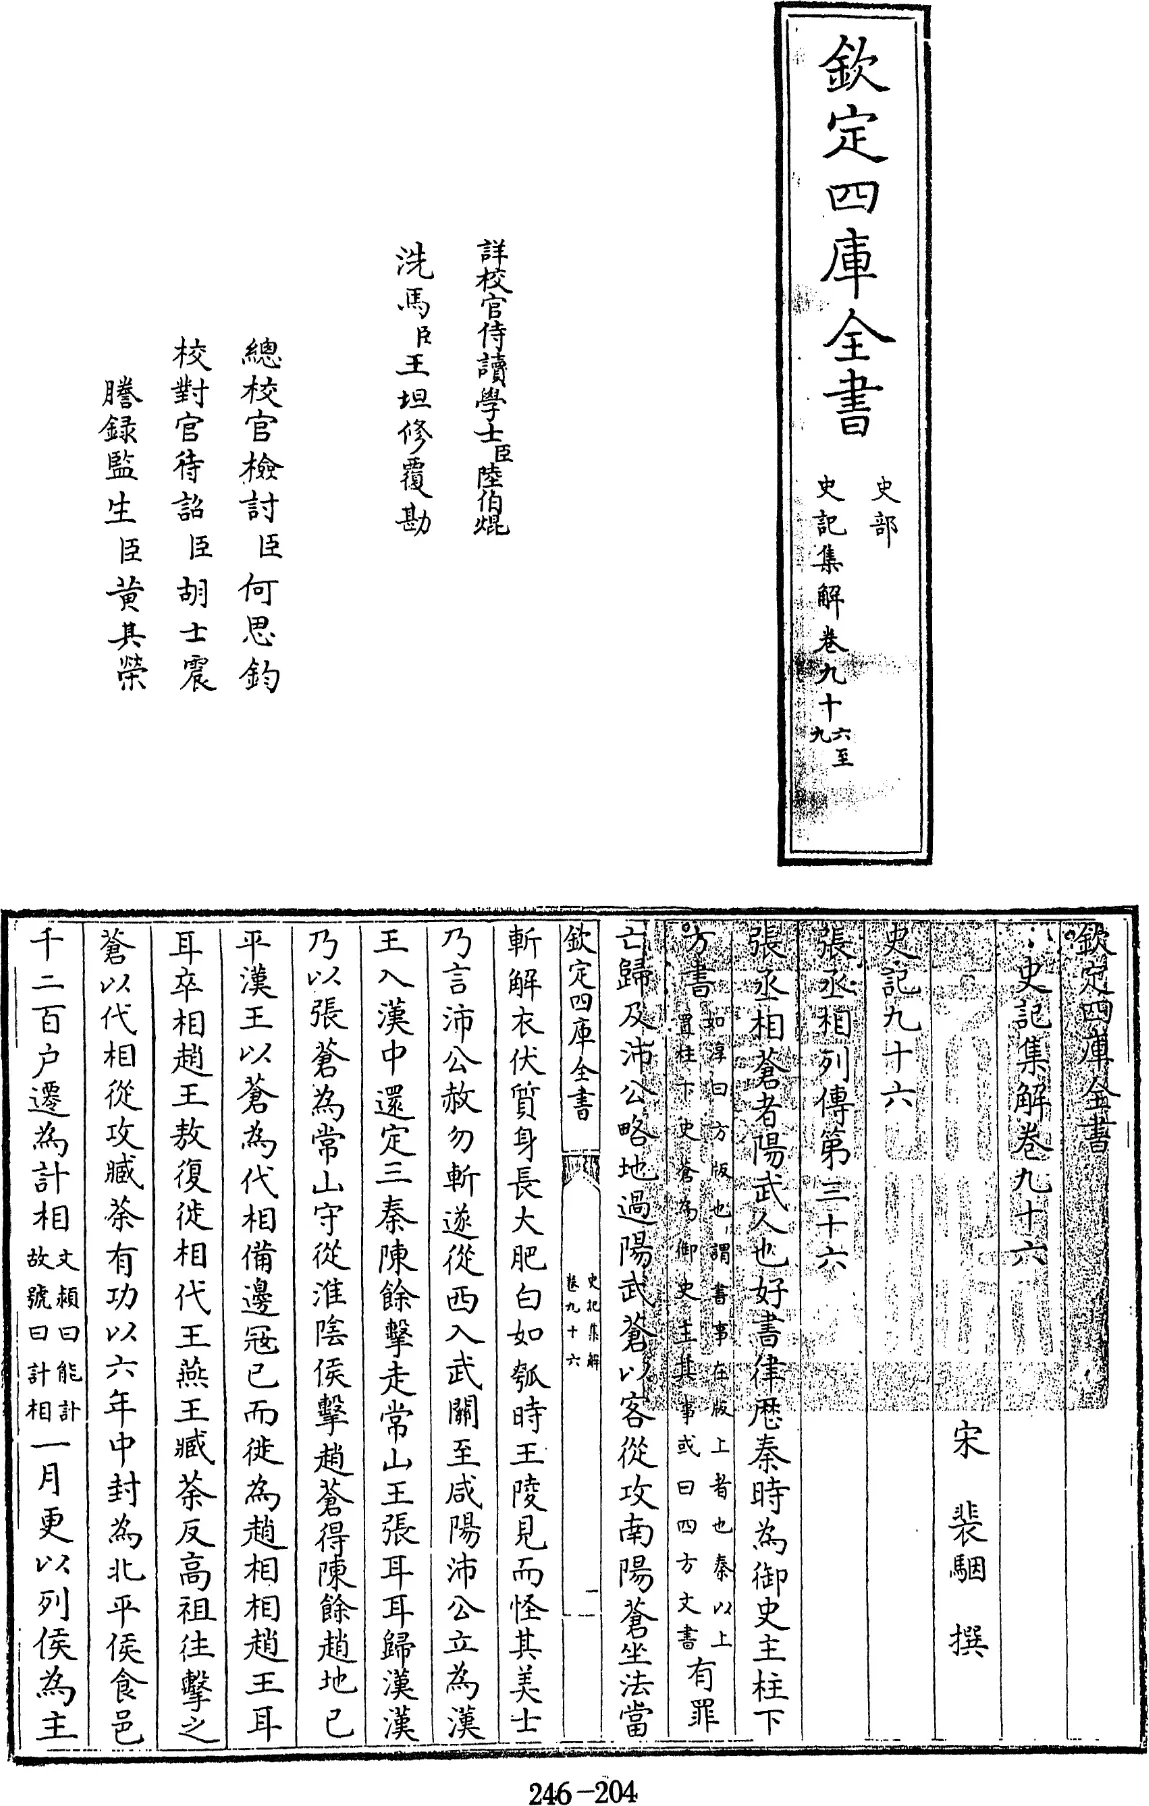 欽定四庫全書
史部
史記集解卷九十六至九
詳校官侍讀學士臣陸伯焜
洗馬臣王坦修覆勘
總校官檢討臣何思鈞
校對官待詔臣胡士震
謄録監生臣黄其榮
欽定四庫全書
史記集解卷九十六
宋 裴駰 撰
史記九十六
張丞相列傳第三十六
張丞相蒼者陽武人也好書律歴秦時為御史主柱下
方書如淳曰方版也謂書事在版上者也秦以上置柱下史蒼為御史主其事或曰四方文書有罪
亡歸及沛公略地過陽武蒼以客從攻南陽蒼坐法當
斬解衣伏質身長大肥白如瓠時王陵見而怪其美士
欽定四庫全書
史記集解
卷九十六
一
乃言沛公赦勿斬遂從西入武關至咸陽沛公立為漢
王入漢中還定三秦陳餘擊走常山王張耳耳歸漢漢
乃以張蒼為常山守從淮陰侯擊趙蒼得陳餘趙地已
平漢王以蒼為代相備邊冦已而徙為趙相相趙王耳
耳卒相趙王敖復徙相代王燕王臧荼反高祖往擊之
蒼以代相從攻臧荼有功以六年中封為北平侯食邑
千二百户遷為計相文頴曰能計故號曰計相一月更以列侯為主
246-204